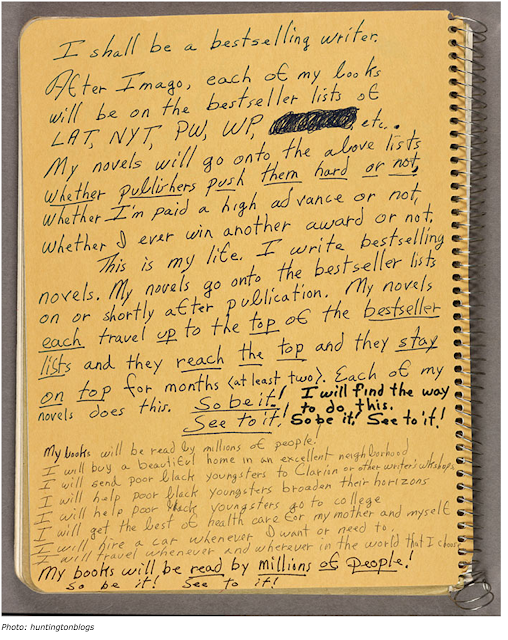 I shall be a bestselling writer.
After Imago, each of my books
will be on the bestseller lists of
LAT, NYT, PW, WP, etc..
My novels will go onto the above lists
whether publishers push them hard or not,
whether I'm paid a high advance or not,
whether I ever win another award or not.
This is my life. I write bestselling
novels. My novels go onto the bestseller lists
on or shortly after publication. My novels
each travel up to the top of the bestseller
lists and they reach the top and they stay
on top for months (at least two). Each of my
novels does this. So be it! I will find the way
to do this.
See to it! So be it! See to it!
My books will be read by millions of people!
I will buy a beautiful home in an excellent neighborhood
I will send poor black youngsters to Clarion or other writer's workshops
I will help poor black youngsters broaden their horizons
I will help poor black youngsters go to college
I will get the best of health care for my mother and myself
I will hire a car whenever I want or need to.
I will travel whenever and wherever in the world that I choose
My books will be read by millions of people!
So be it! See to it!
Photo: huntingtonblogs